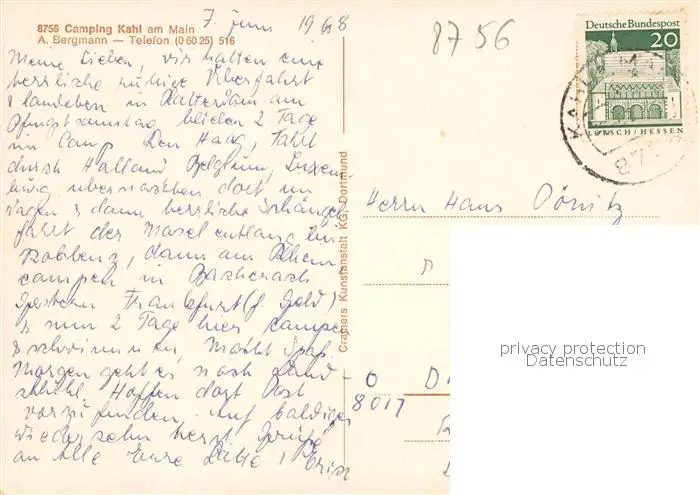 7. Juni 1968
8756 Camping Kahl am Main
A. Bergmann — Telefon (0 60 25) 516
Meine Lieben, wir hatten eine
herrliche ruhige Überfahrt
& landeten in am
Pfingstsamstag blieben 2 Tage
im Camp Den Haag, Fahrt
durch Holland Belgium, Luxem-
burg übernachten dort im
& dann herrliche
fahrt der Mosel entlang bis
Koblenz, dann am Rhein
campen in Bacherach
Gestern Frankfurt (f. Geld)
& nun 2 Tage hier campen
& schwimmen, Macht Spaß.
Morgen geht es nach Land-
Hoffen dort Post
vorzufinden. Auf baldiges
Wiedersehn herzl. Grüße
an Alle Eure &
Cramers Kunstanstalt KG, Dortmund
8756
Deutsche Bundespost
20
LORSCH / HESSEN
KAHL MAIN
875
Herrn Hans
D
8017
privacy protection
Datenschutz